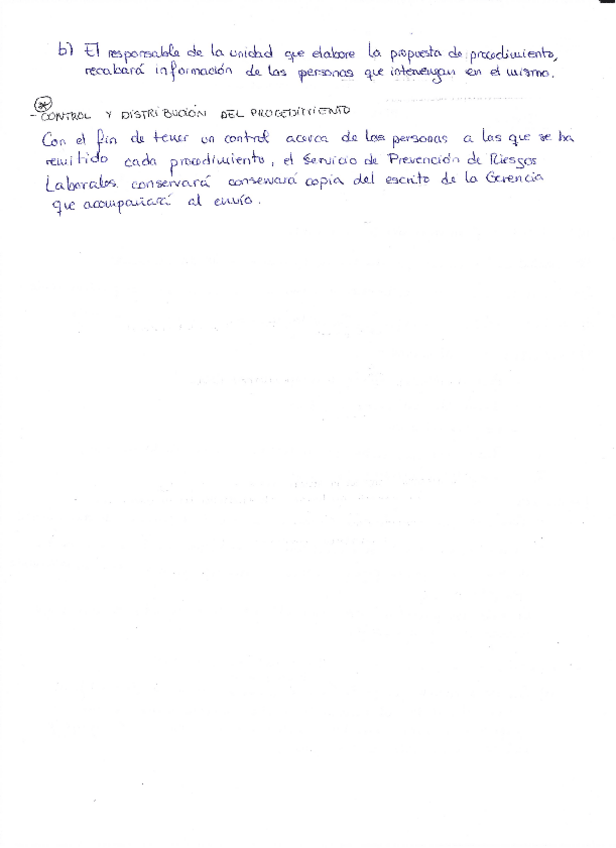 b) El responsable de la unidad que elabore la propuesta de procedimiento,
recabará información de las personas que intervengan en el mismo.
* 
- CONTROL Y DISTRIBUCIÓN DEL PROCEDIMIENTO
Con el fin de tener un control acerca de las personas a las que se ha
remitido cada procedimiento, el Servicio de Prevención de Riesgos
Laborales conservará conservará copia del escrito de la Gerencia
que acompañará al envío.